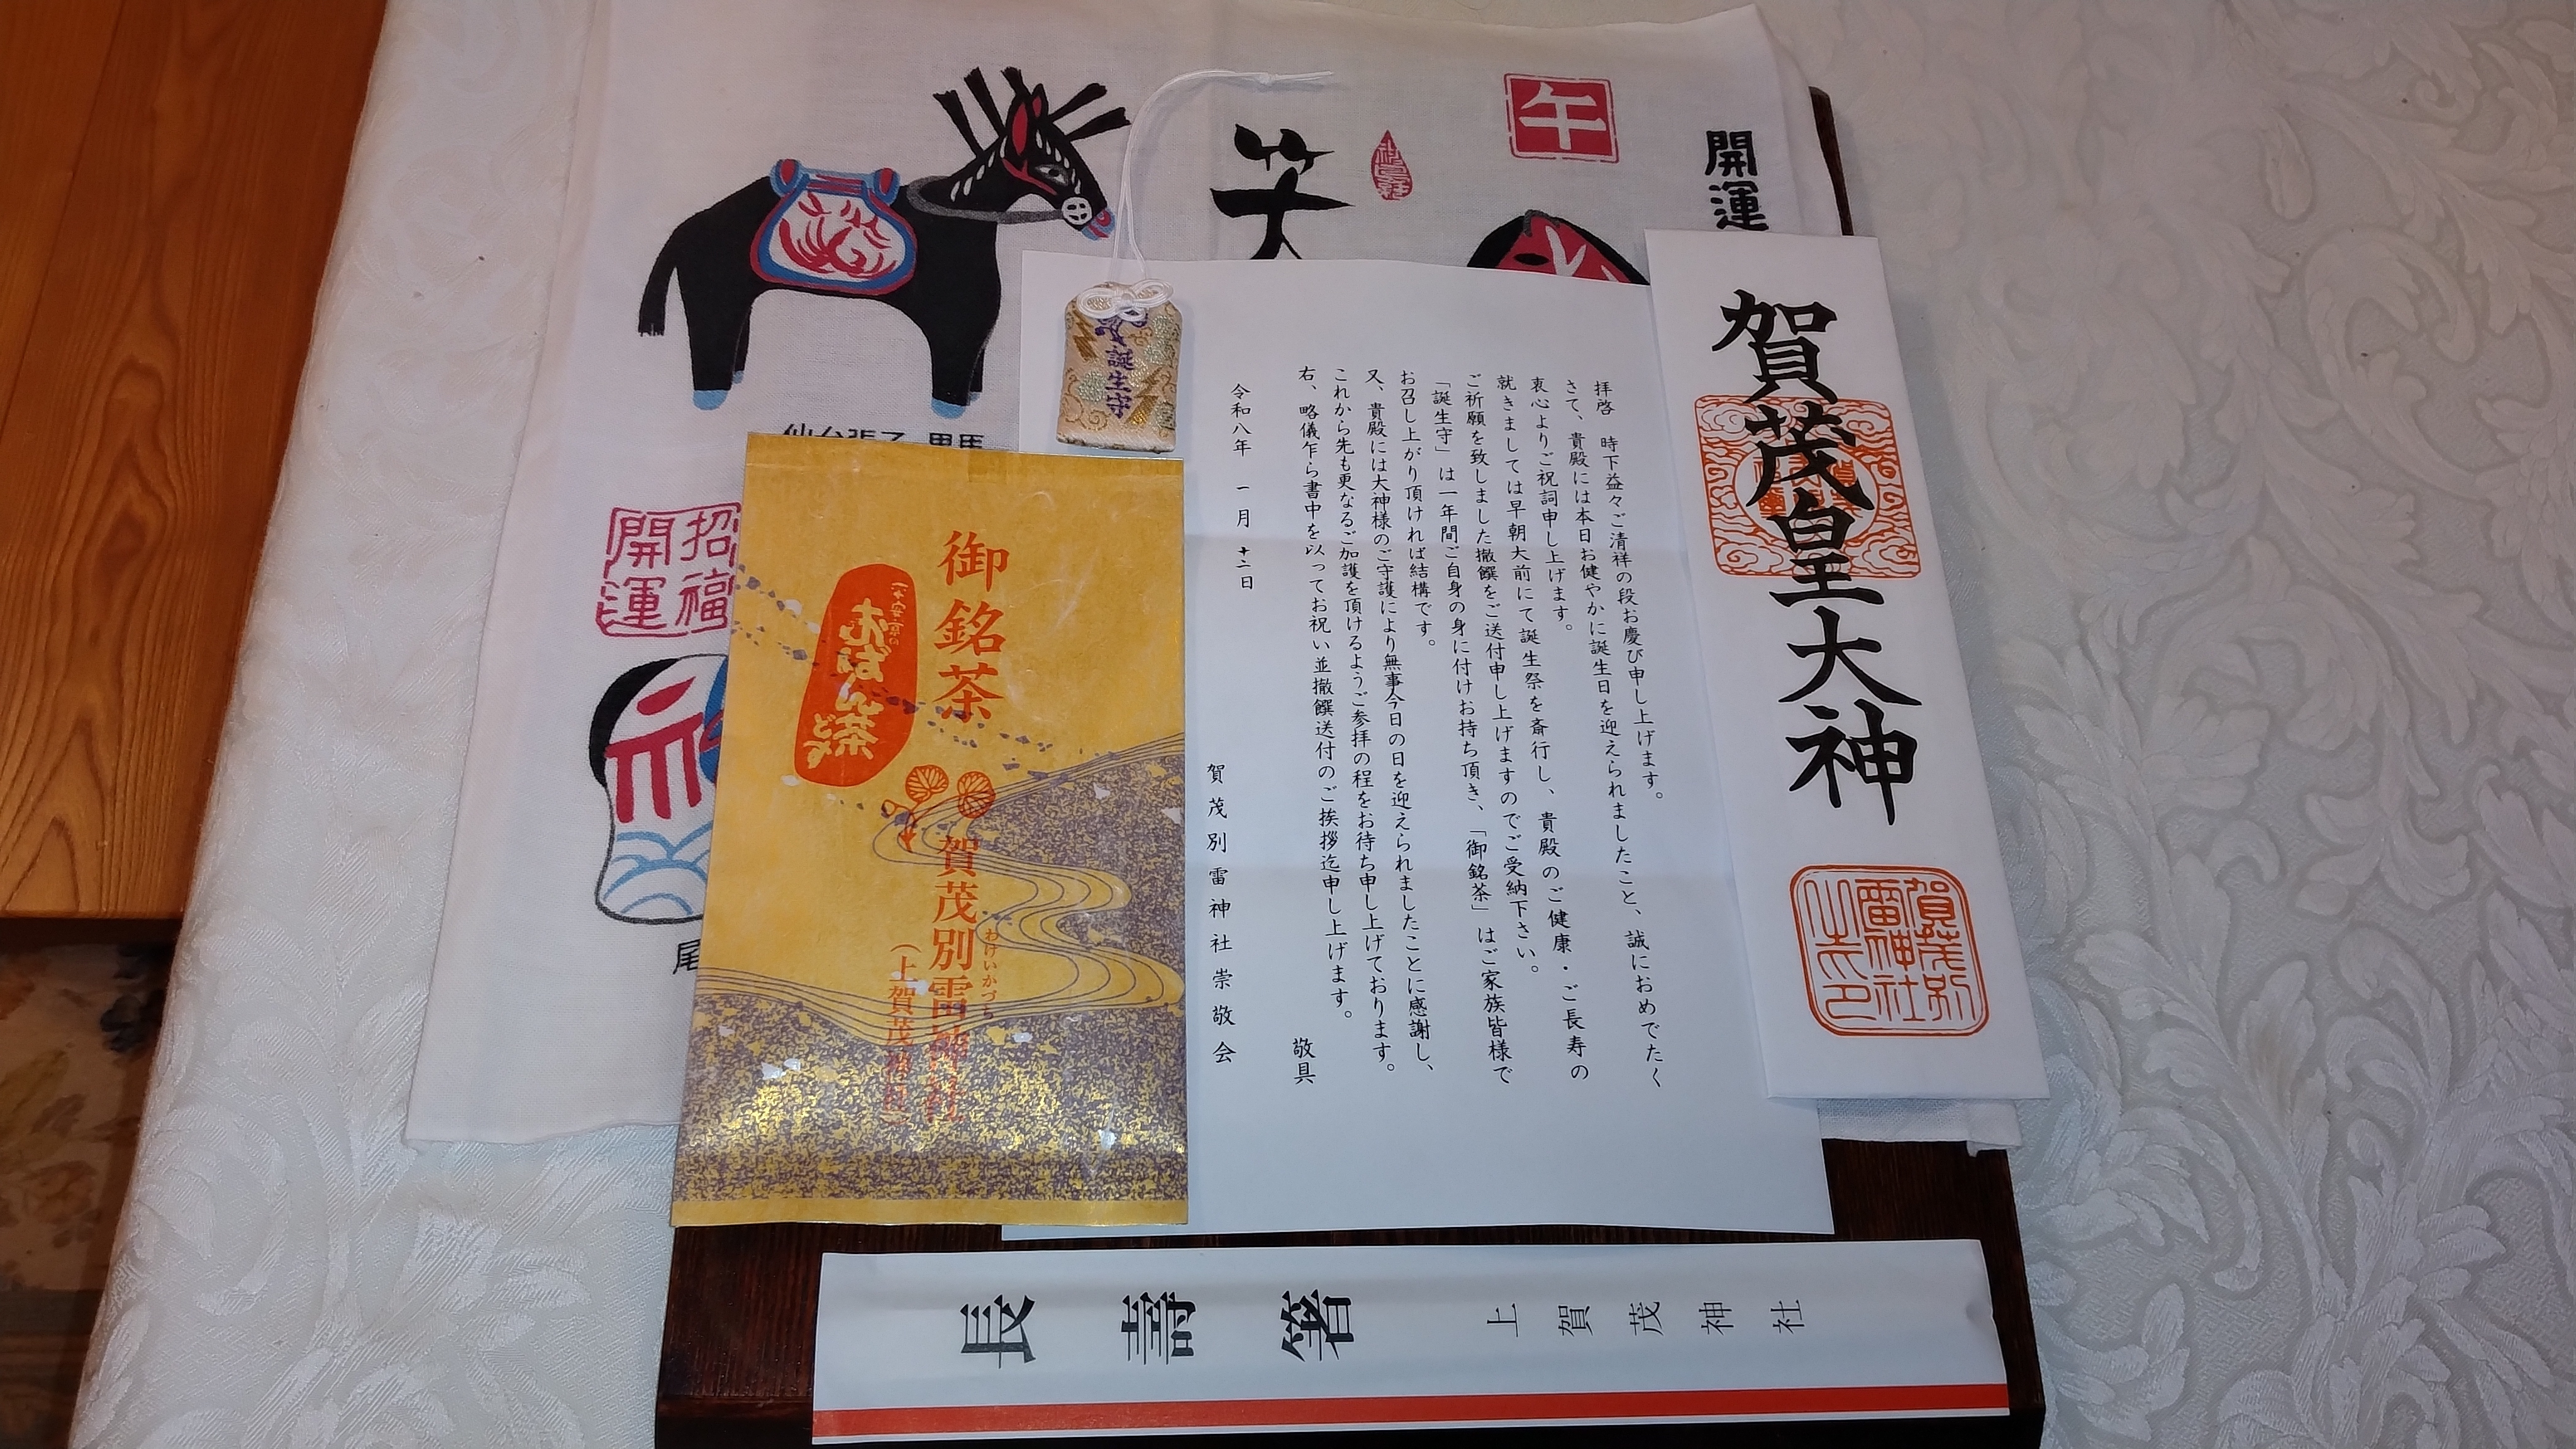 笑
午
開運
仙台張子 黒馬
招福
開運
尾
誕生守
賀茂皇大神
賀茂別
雷神社
之印
拝啓 時下益々ご清祥の段お慶び申し上げます。
さて、貴殿には本日お健やかに誕生日を迎えられましたこと、誠におめでたく
衷心よりご祝詞申し上げます。
就きましては早朝大前にて誕生祭を斎行し、貴殿のご健康・ご長寿の
ご祈願を致しました撤饌をご送付申し上げますのでご受納下さい。
「誕生守」は一年間ご自身の身に付けお持ち頂き、「御銘茶」はご家族皆様で
お召し上がり頂ければ結構です。
又、貴殿には大神様のご守護により無事今日の日を迎えられましたことに感謝し、
これから先も更なるご加護を頂けるようご参拝の程をお待ち申し上げております。
右、略儀乍ら書中を以ってお祝い並撤饌送付のご挨拶迄申し上げます。
敬具
令和八年 一月 十二日
賀茂別雷神社崇敬会
御銘茶
赤ばん茶
どすえ
賀茂別雷神社
わけいかづち
(上賀茂神社)
長壽箸
上賀茂神社